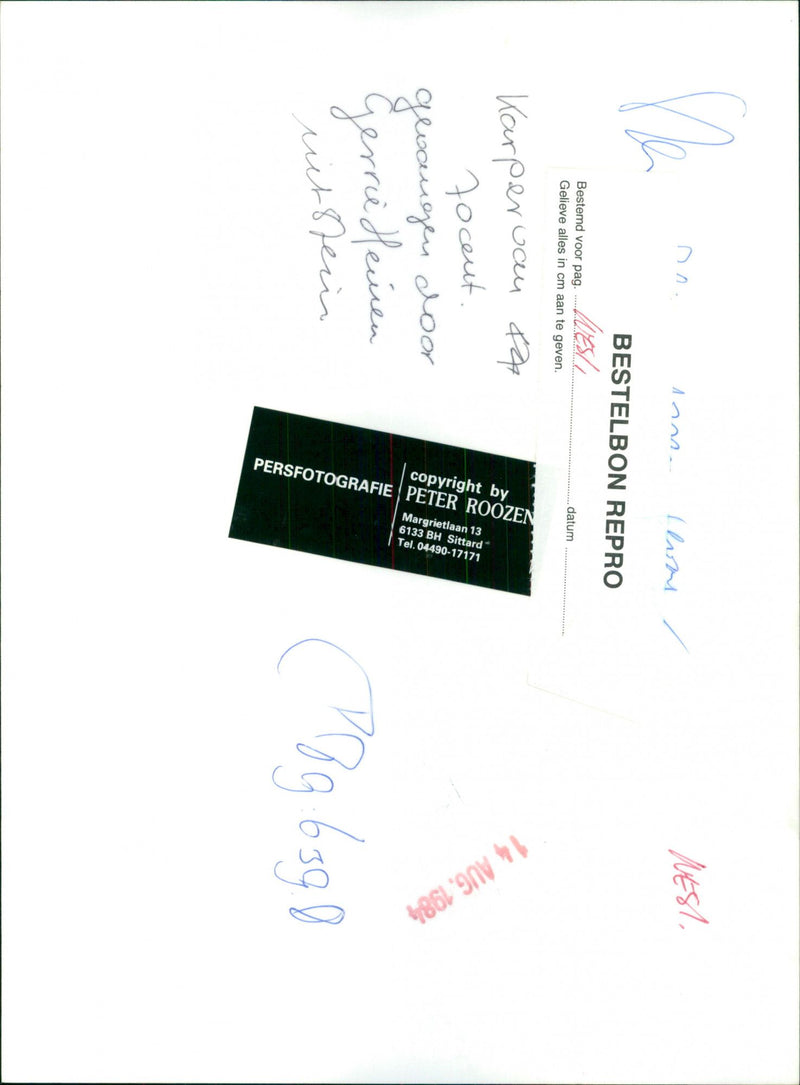 Karper van 47
70 cent.
gevangen door
Gerrie Heinen
uit Stein
BESTELBON REPRO
Bestemd voor pag. WEST. datum
Gelieve alles in cm aan te geven.
PERSFOTOGRAFIE
copyright by
PETER ROOZEN
Margrietlaan 13
6133 BH Sittard
Tel. 04490-17171
14 AUG. 1984
WEST.